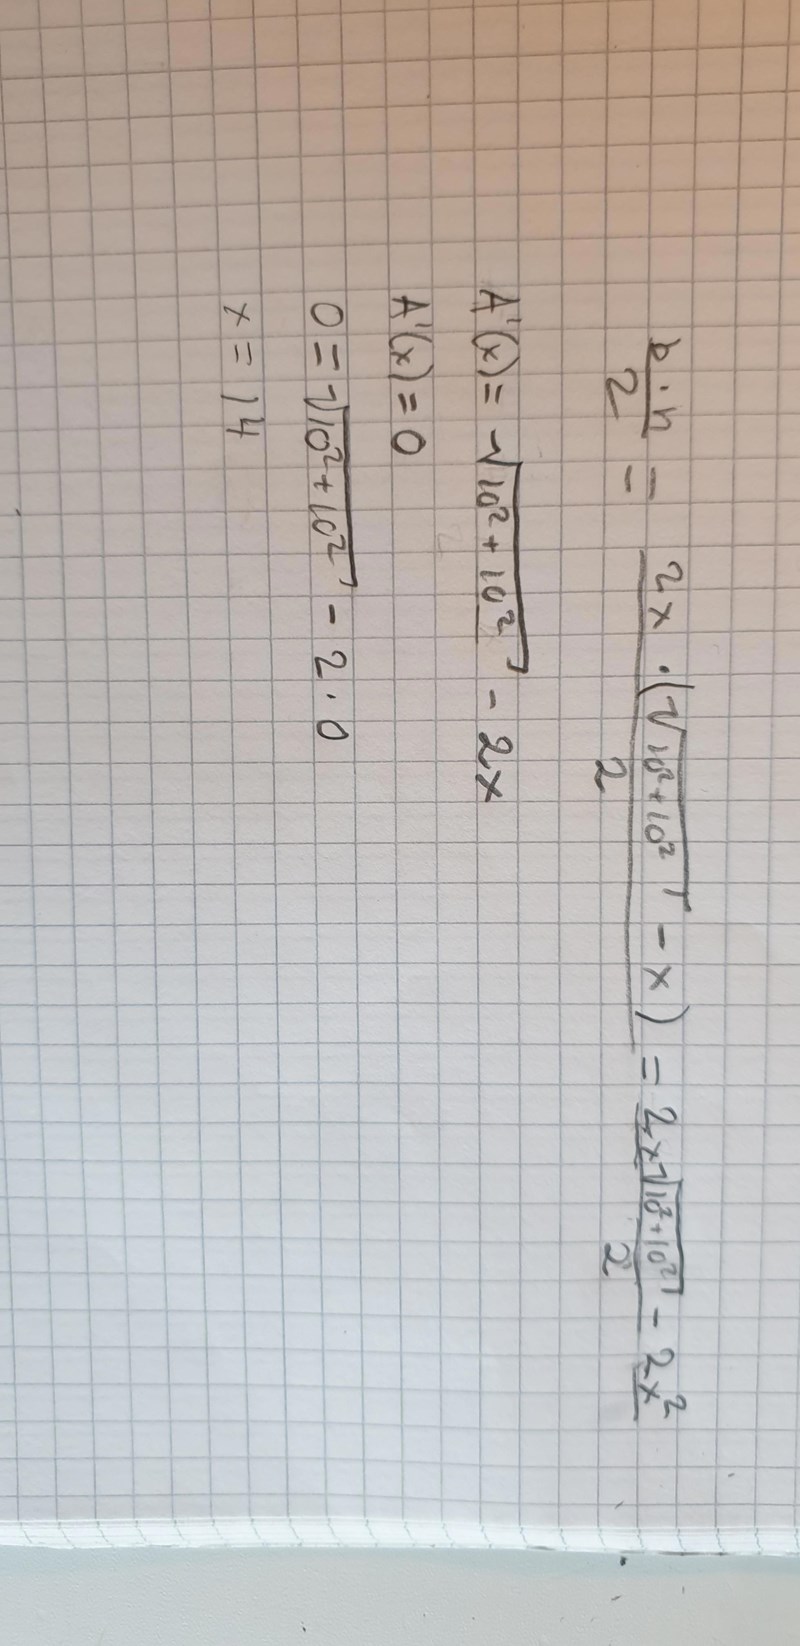 b·h/2 = 2x·(√(10²+10²) - x)/2 = (2x√(10²+10²) - 2x²)/2
A'(x) = √(10²+10²) - 2x
A'(x) = 0
0 = √(10²+10²) - 2·0
x = 14